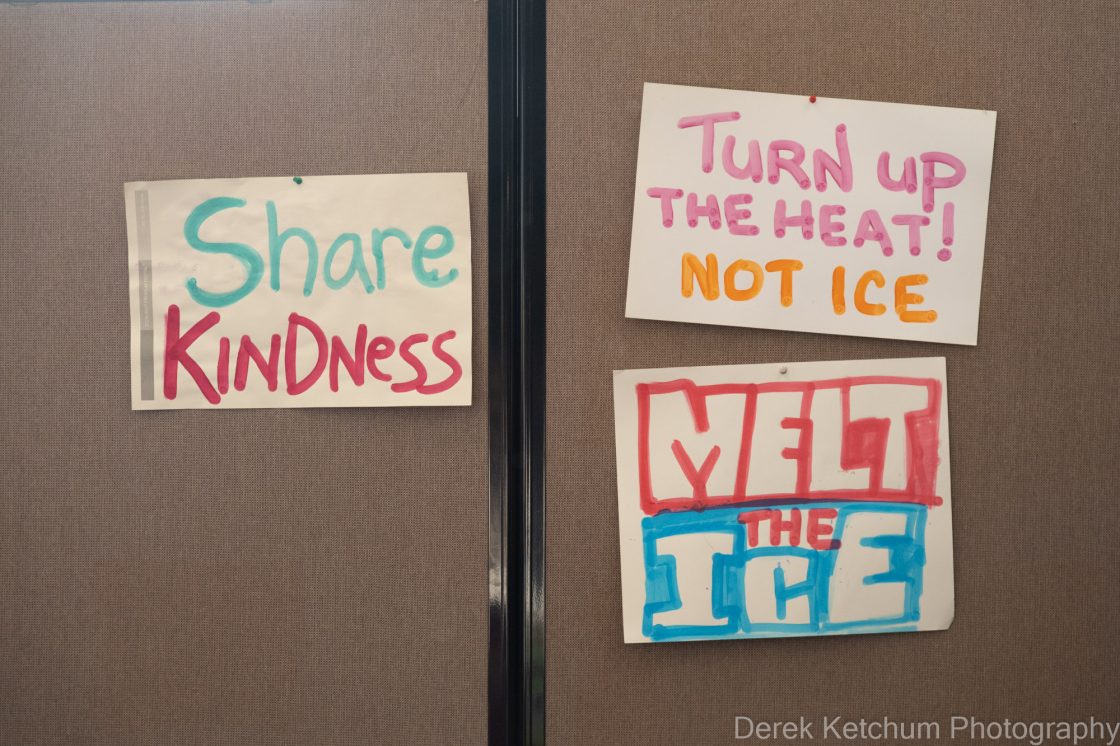 Share
KINDNess
TURN UP
THE HEAT!
NOT ICE
MELT
THE
ICE
Derek Ketchum Photography